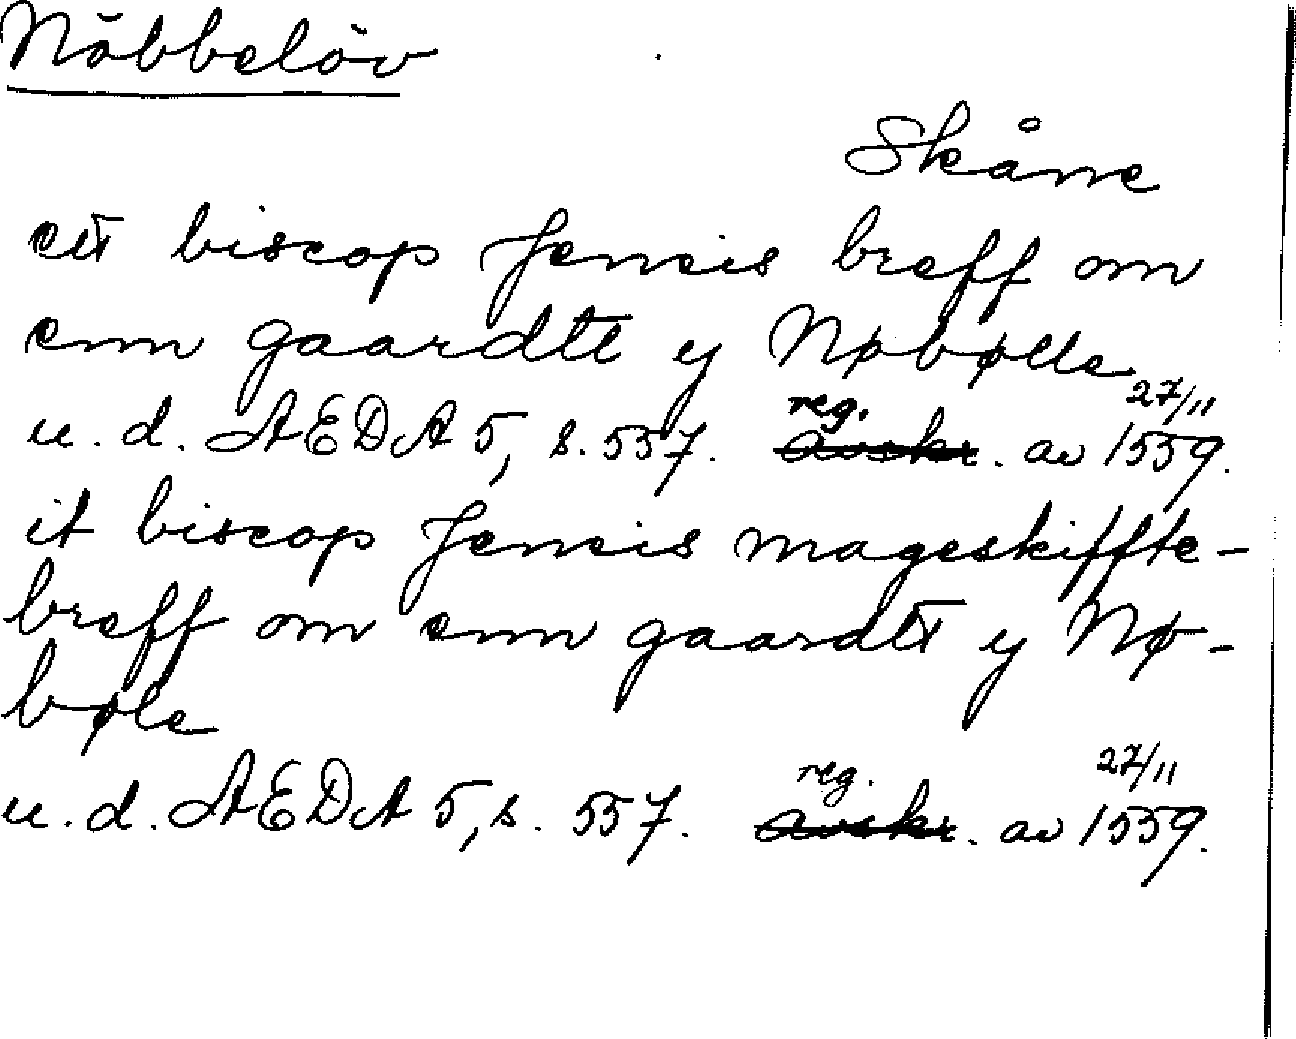 Nöbbelöv
Skåne
ett biscop Jenssis breff om
enn gaardtt y Nøbølle
u.d. AEDA 5, s. 557. reg. avskr. av 27/11 1559.
it biscop Jenssis mageskiffte-
breff om enn gaardtt y Nø-
bøle
u.d. AEDA 5, s. 557. reg. avskr. av 27/11 1559.